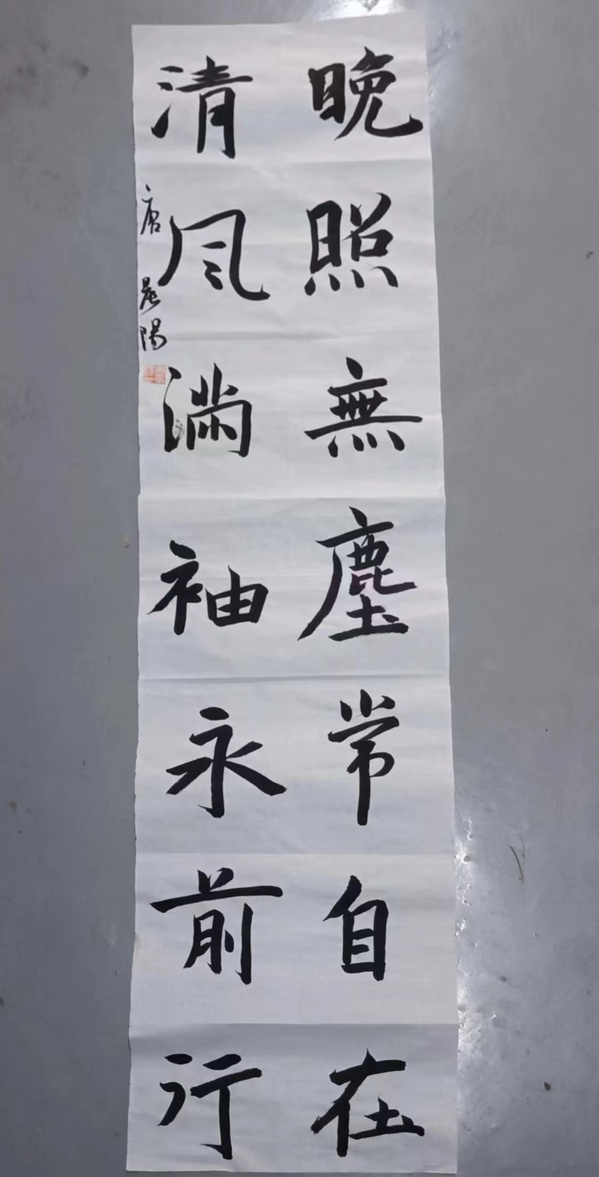 晚照無塵常自在
清风滿袖永前行
唐晨陽